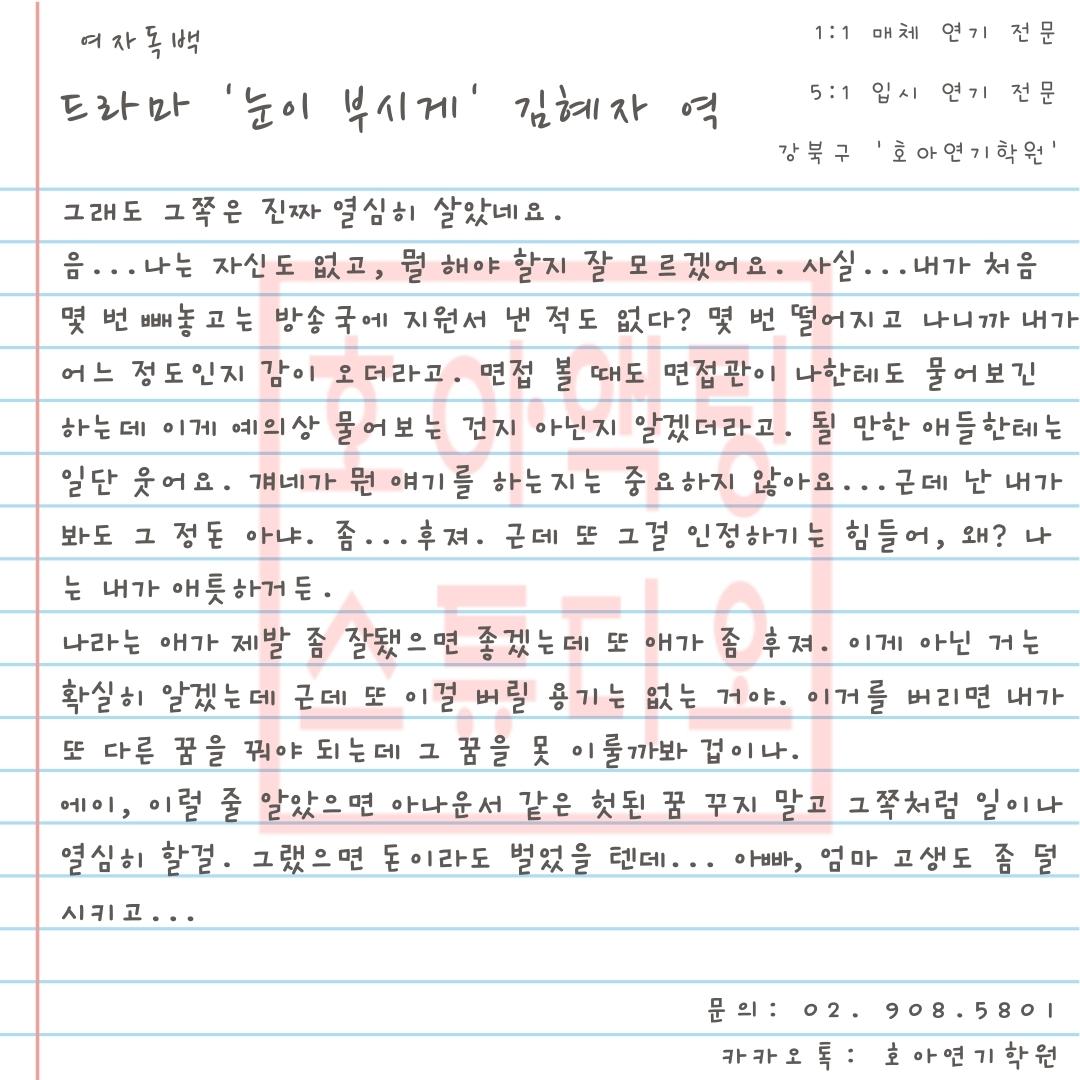 여자독백
드라마 '눈이 부시게' 김혜자 역
1:1 매체 연기 전문
5:1 입시 연기 전문
강북구 '호아연기학원'
그래도 그쪽은 진짜 열심히 살았네요.
음...나는 자신도 없고, 뭘 해야 할지 잘 모르겠어요. 사실...내가 처음
몇 번 빼놓고는 방송국에 지원서 낸 적도 없다? 몇 번 떨어지고 나니까 내가
어느 정도인지 감이 오더라고. 면접 볼 때도 면접관이 나한테도 물어보긴
하는데 이게 예의상 물어보는 건지 아닌지 알겠더라고. 될 만한 애들한테는
일단 웃어요. 걔네가 뭔 얘기를 하는지는 중요하지 않아요...근데 난 내가
봐도 그 정돈 아냐. 좀...후져. 근데 또 그걸 인정하기는 힘들어, 왜? 나
는 내가 애틋하거든.
나라는 애가 제발 좀 잘됐으면 좋겠는데 또 애가 좀 후져. 이게 아닌 거는
확실히 알겠는데 근데 또 이걸 버릴 용기는 없는 거야. 이거를 버리면 내가
또 다른 꿈을 꿔야 되는데 그 꿈을 못 이룰까봐 겁이나.
에이, 이럴 줄 알았으면 아나운서 같은 헛된 꿈 꾸지 말고 그쪽처럼 일이나
열심히 할걸. 그랬으면 돈이라도 벌었을 텐데... 아빠, 엄마 고생도 좀 덜
시키고...
호아액팅
스튜디오
문의: 02. 908.5801
카카오톡: 호아연기학원